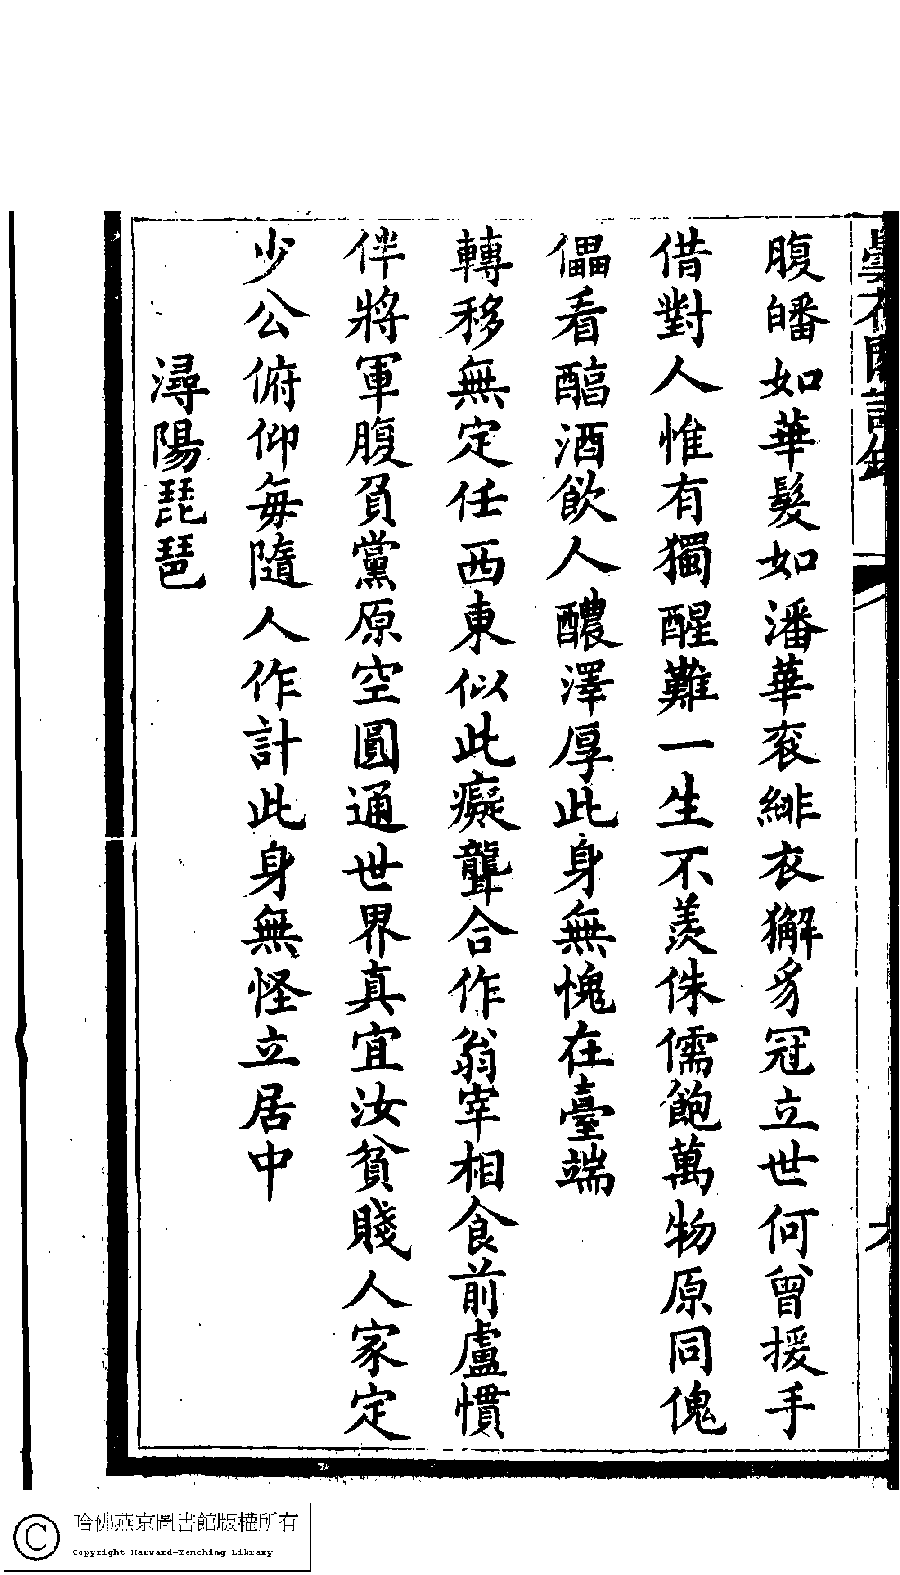 腹皤如華髮如潘華衮緋衣獬豸冠立世何曾援手
借對人惟有獨醒難一生不羨侏儒飽萬物原同傀
儡看醕酒飲人醲澤厚此身無愧在臺端
轉移無定任西東似此癡聾合作翁宰相食前盧慣
伴將軍腹負黨原空圓通世界真宜汝貧賤人家定
少公俯仰每隨人作計此身無怪立居中
潯陽琵琶
哈佛燕京圖書館版權所有
Copyright Harvard-Yenching Library